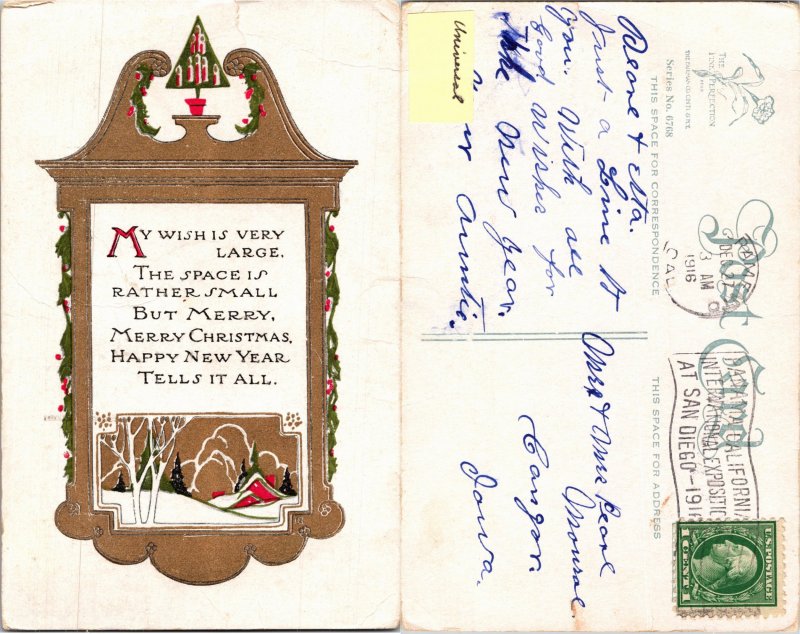 MY WISH IS VERY
LARGE.
THE SPACE IS
RATHER SMALL
BUT MERRY,
MERRY CHRISTMAS,
HAPPY NEW YEAR
TELLS IT ALL.
Universal
THE
PERFECTION
Series No. 6768
THIS SPACE FOR CORRESPONDENCE
Post Card
THIS SPACE FOR ADDRESS
Just a Line to
You. With all
Good Wishes for
The New Year.
Auntie.
Mr & Mrs Pearl
Iowa.
3 AM
1916
CAL
PANAMA CALIFORNIA
INTERNATIONAL EXPOSITION
AT SAN DIEGO - 1916
U.S. POSTAGE
1 CENT 1